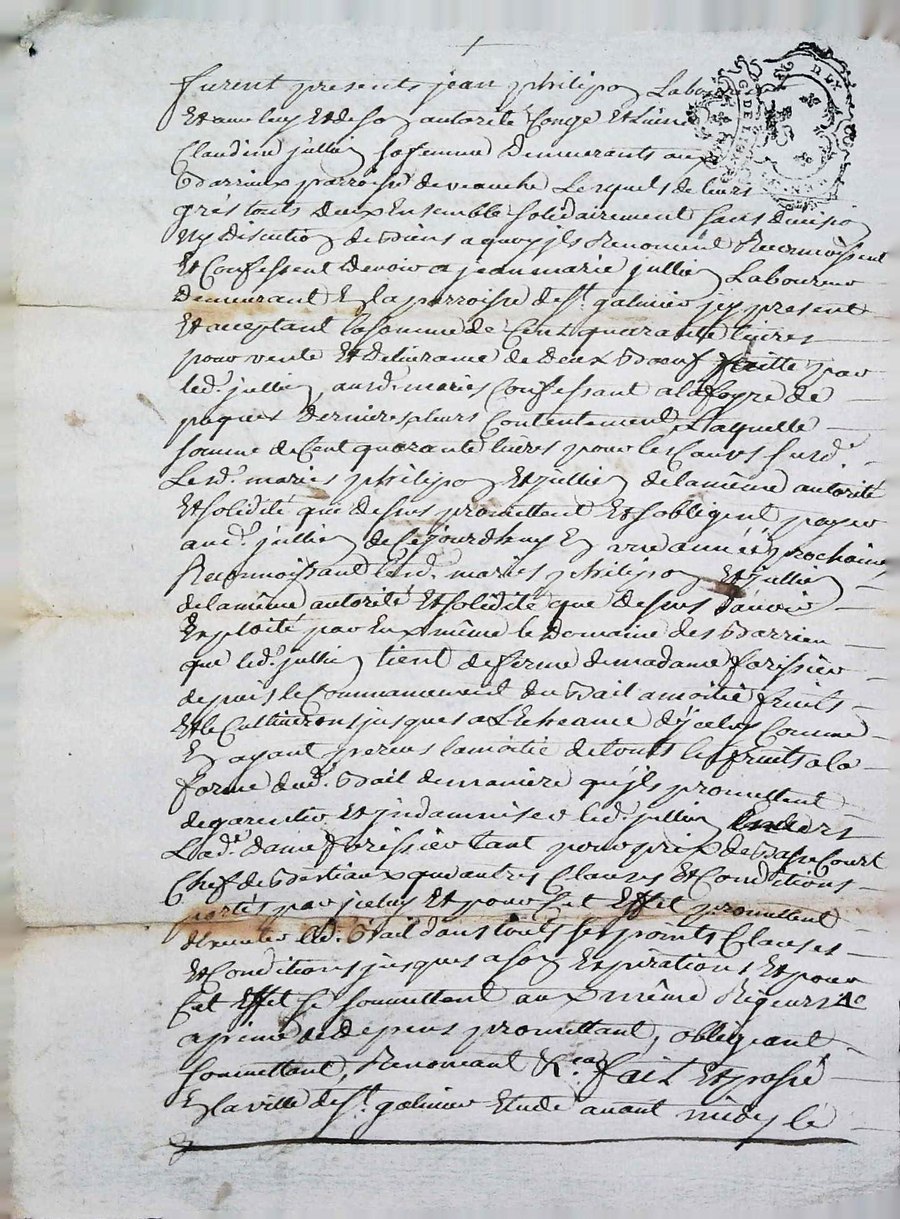 furent presents jean philipon Laboureur
Et avec luy Et de son autorité Congé Et Licence
Claudine jullien sa femme Demeurants au
Barrieux parroisse de veauche Lesquels de leurs
grés touts Deux Ensemble solidairement sans division
ny Discution de Biens a quoy jls Renoncent Reconnoissent
Et Confessent Devoir a jean marie jullien Laboureur
Demeurant En la parroisse de St. galmier jcy present
Et acceptant la somme de Cent quarante livres
pour vente Et delivrance de Deux Boeuf faitte par
led. jullien ausd. mariés Confessant a la foyre de
paques Derniere pleurs Contentement, Laquelle
somme de Cent quarante livres pour les Causes susd.
Lesd. mariés philipon Et jullien de la même autorité
Et solidité que dessus promettent Et sobligent payer
aud. jullien de Cejourdhuy En une année prochaine
Reconnoissant lesd. mariés philipon Et jullien
de la même autorité Et solidité que dessus davoir
Exploité par Eux même le Domaine des Barrieu
que led. jullien tient de ferme de madame forissier
depuis le Commancement du Bail a moitié fruits
Et le Cultiveront jusques a L'Echeance d'jceluy Comme
En ayant perçus la moitié de touts les fruits a la
forme dud. Bail de maniere qu'jls promettent
de garentir Et jndamniser led. jullien Envers
Lad. dame forissier tant pour prix de Basse Court
Chef de Bestiaux que autres Clauses Et Conditions
portés par jceluy Et pour Cet Effet promettent
dexecuter led. Bail dans touts ses points Clauses
Et Conditions jusques a son Expirations Et pour
Cet Effet se soumettent aux même Rigeurs &c
a peine de depens promettant, obligeant
soumettant, Renoncant &c. fait Et passé
En la ville de St. galmier Etude avant midy le